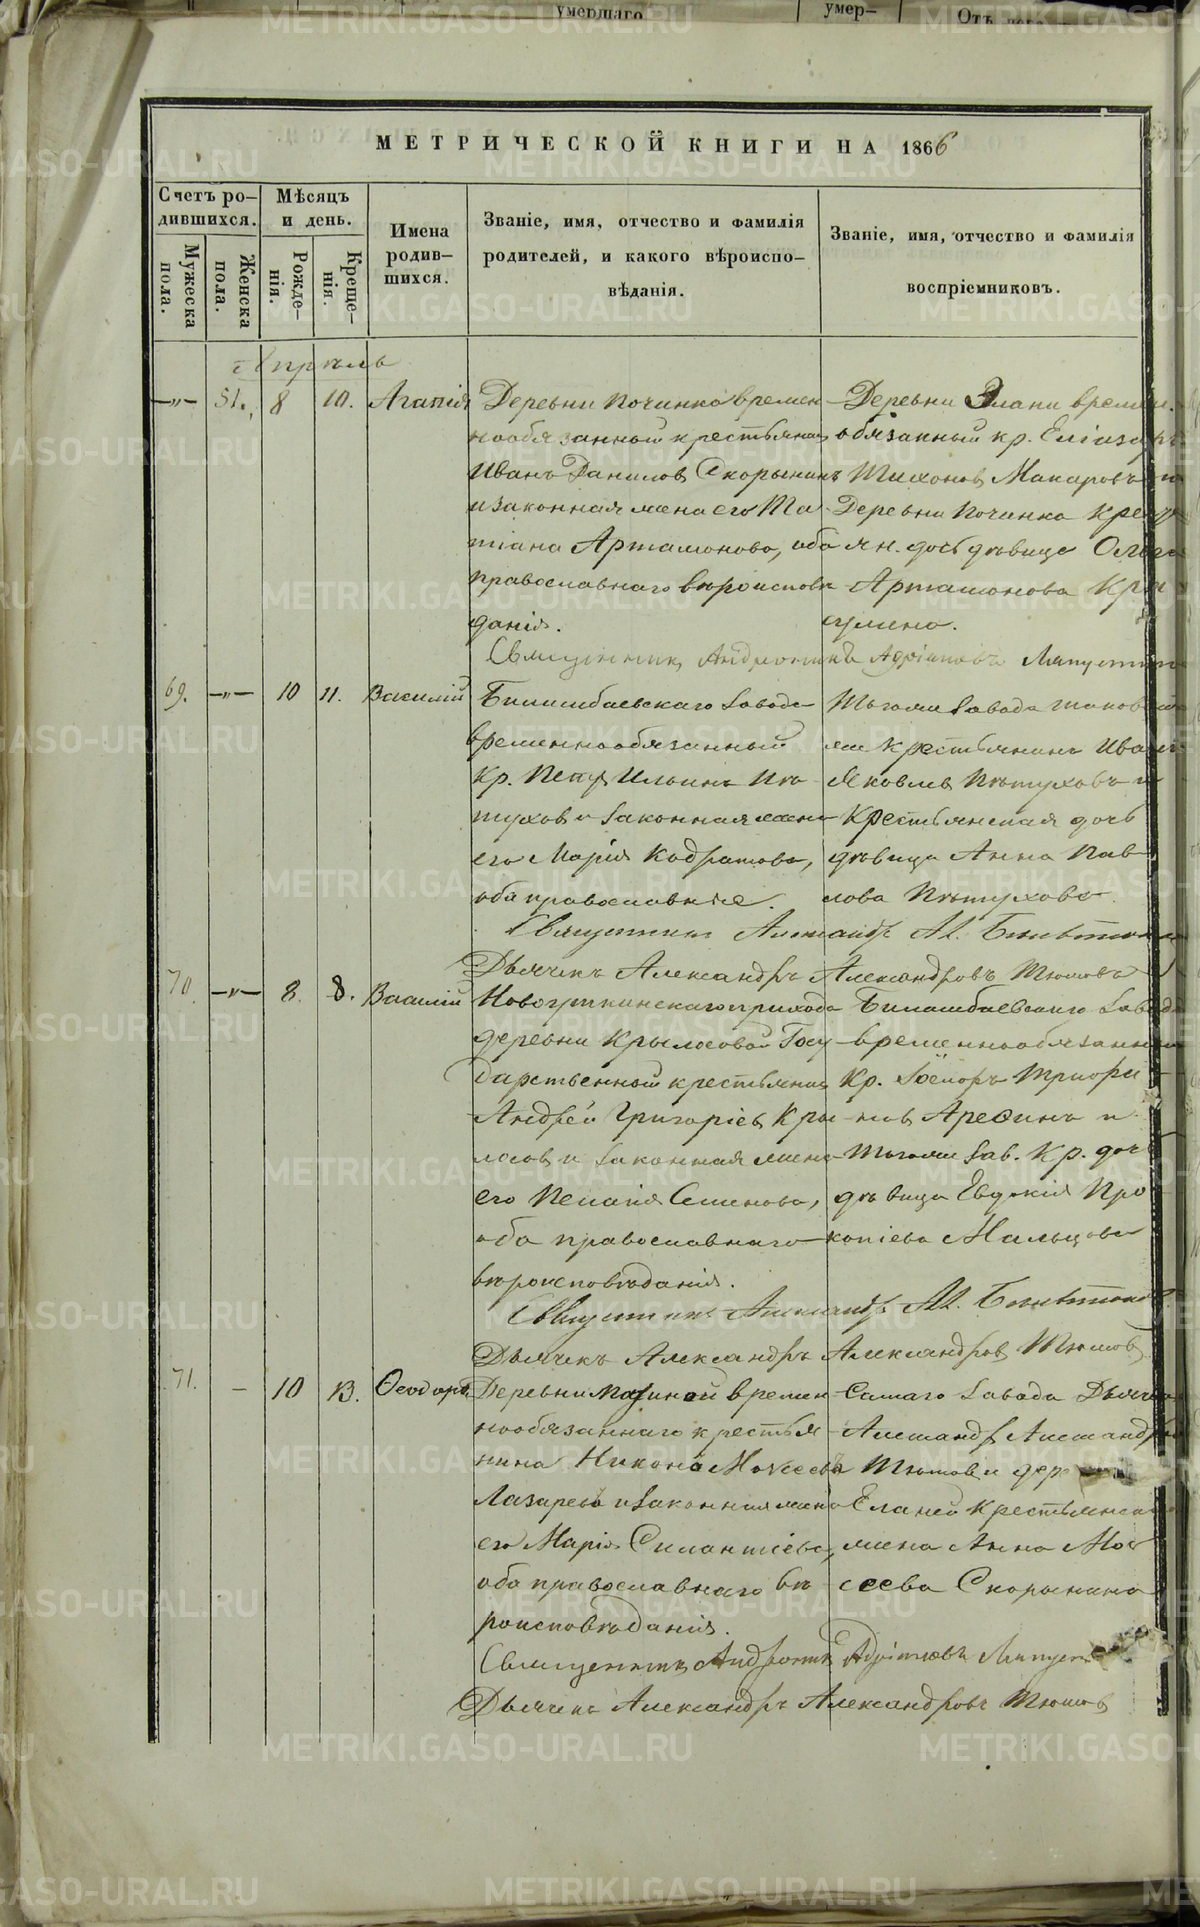 умершаго
умер-
Отъ чего
МЕТРИЧЕСКОЙ КНИГИ НА 1866
Счетъ ро-
дившихся.
Мѣсяцъ
и день.
Имена
родив-
шихся.
Званіе, имя, отчество и фамилія
родителей, и какого вѣроиспо-
вѣданія.
Званіе, имя, отчество и фамилія
воспріемниковъ.
Мужеска
пола.
Женска
пола.
Рожде-
нія.
Креще-
нія.
Апрѣль
-"- 51. 8 10. Агапія
Деревни Починка времен-
нообязанный крестьянинъ
Иванъ Данилов Скорынинъ
и законная жена его Та-
тіана Артамонова, оба
православнаго вѣроисповѣ-
данія.
Деревни Елани времен.
обязанный кр. Еліазаръ
Тихонов Макаровъ и
Деревни Починка кресть
ян. дочь дѣвица Ольга
Артамонова
Священникъ Андроникъ Адріановъ Ляпустинъ
69. -"- 10 11. Василій
Билимбаевскаго завода
временнообязанный
кр. Петръ Ильинъ Пѣ-
тухов и законная жена
его Марія Кодратова,
оба православные.
Тогоже завода таковой
же крестьянинъ Иванъ
Яковлев Пѣтуховъ и
Крестьянская дочь
дѣвица Анна Пав-
лова Пѣтухова.
Священникъ Александръ М.
Дьячекъ Александръ Александровъ Тюшовъ
70. -"- 8. 8. Василій
Новоуткинскаго прихода
деревни Крылосовой Госу-
дарственный крестьянинъ
Андрей Григоріев Кры-
лосов и законная жена
его Пелагія Семенова,
оба православнаго
вѣроисповѣданія.
Билимбаевскаго завода
временнообязанный
Кр. Ѳедоръ Трифо-
нов Аресинъ и
Тогоже зав. Кр. дочь
дѣвица Евдокія Про-
копіева Мальцова
Священникъ Александръ М.
Дьячекъ Александръ Александров Тюшов
71. - 10 13. Ѳеодоръ
Деревни Мазиной времен-
нообязаннаго крестья-
нина Никона Моѵсеева
Лазарева и законная жена
его Марія Силантіева,
оба православнаго вѣ-
роисповѣданія.
Самаго завода Дьячекъ
Александръ Александров
Тюшов и дер.
Еланей крестьянская
жена Анна Мов
сеева Скорынина
Священникъ Андроникъ Адріановъ Ляпустинъ
Дьячекъ Александръ Александровъ Тюшов
METRIKI.GASO-URAL.RU